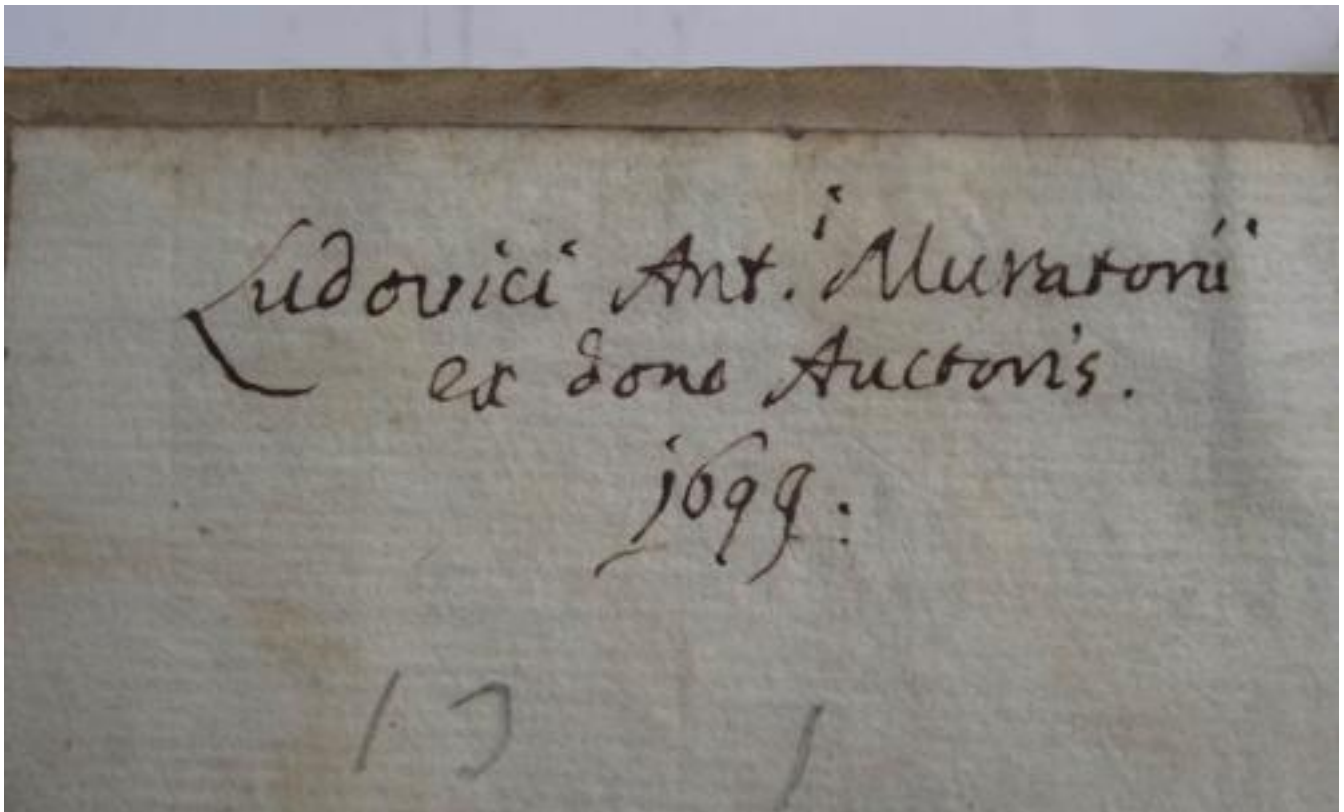 Ludovici Ant.i Muratorii
ex dono Auctoris.
1699.